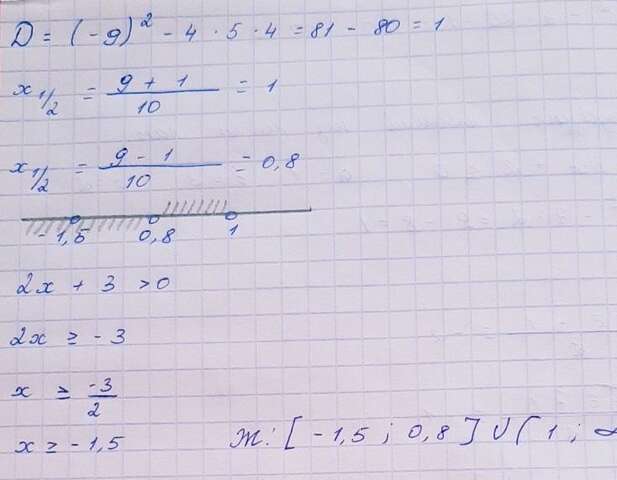 D = (-9)² - 4 · 5 · 4 = 81 - 80 = 1
x 1/2 = (9 + 1)/10 = 1
x 1/2 = (9 - 1)/10 = 0,8
-1,5 0,8 1
2x + 3 > 0
2x ≥ -3
x ≥ -3/2
x ≥ -1,5
Ж: [-1,5 ; 0,8] ∪ (1 ; ∞